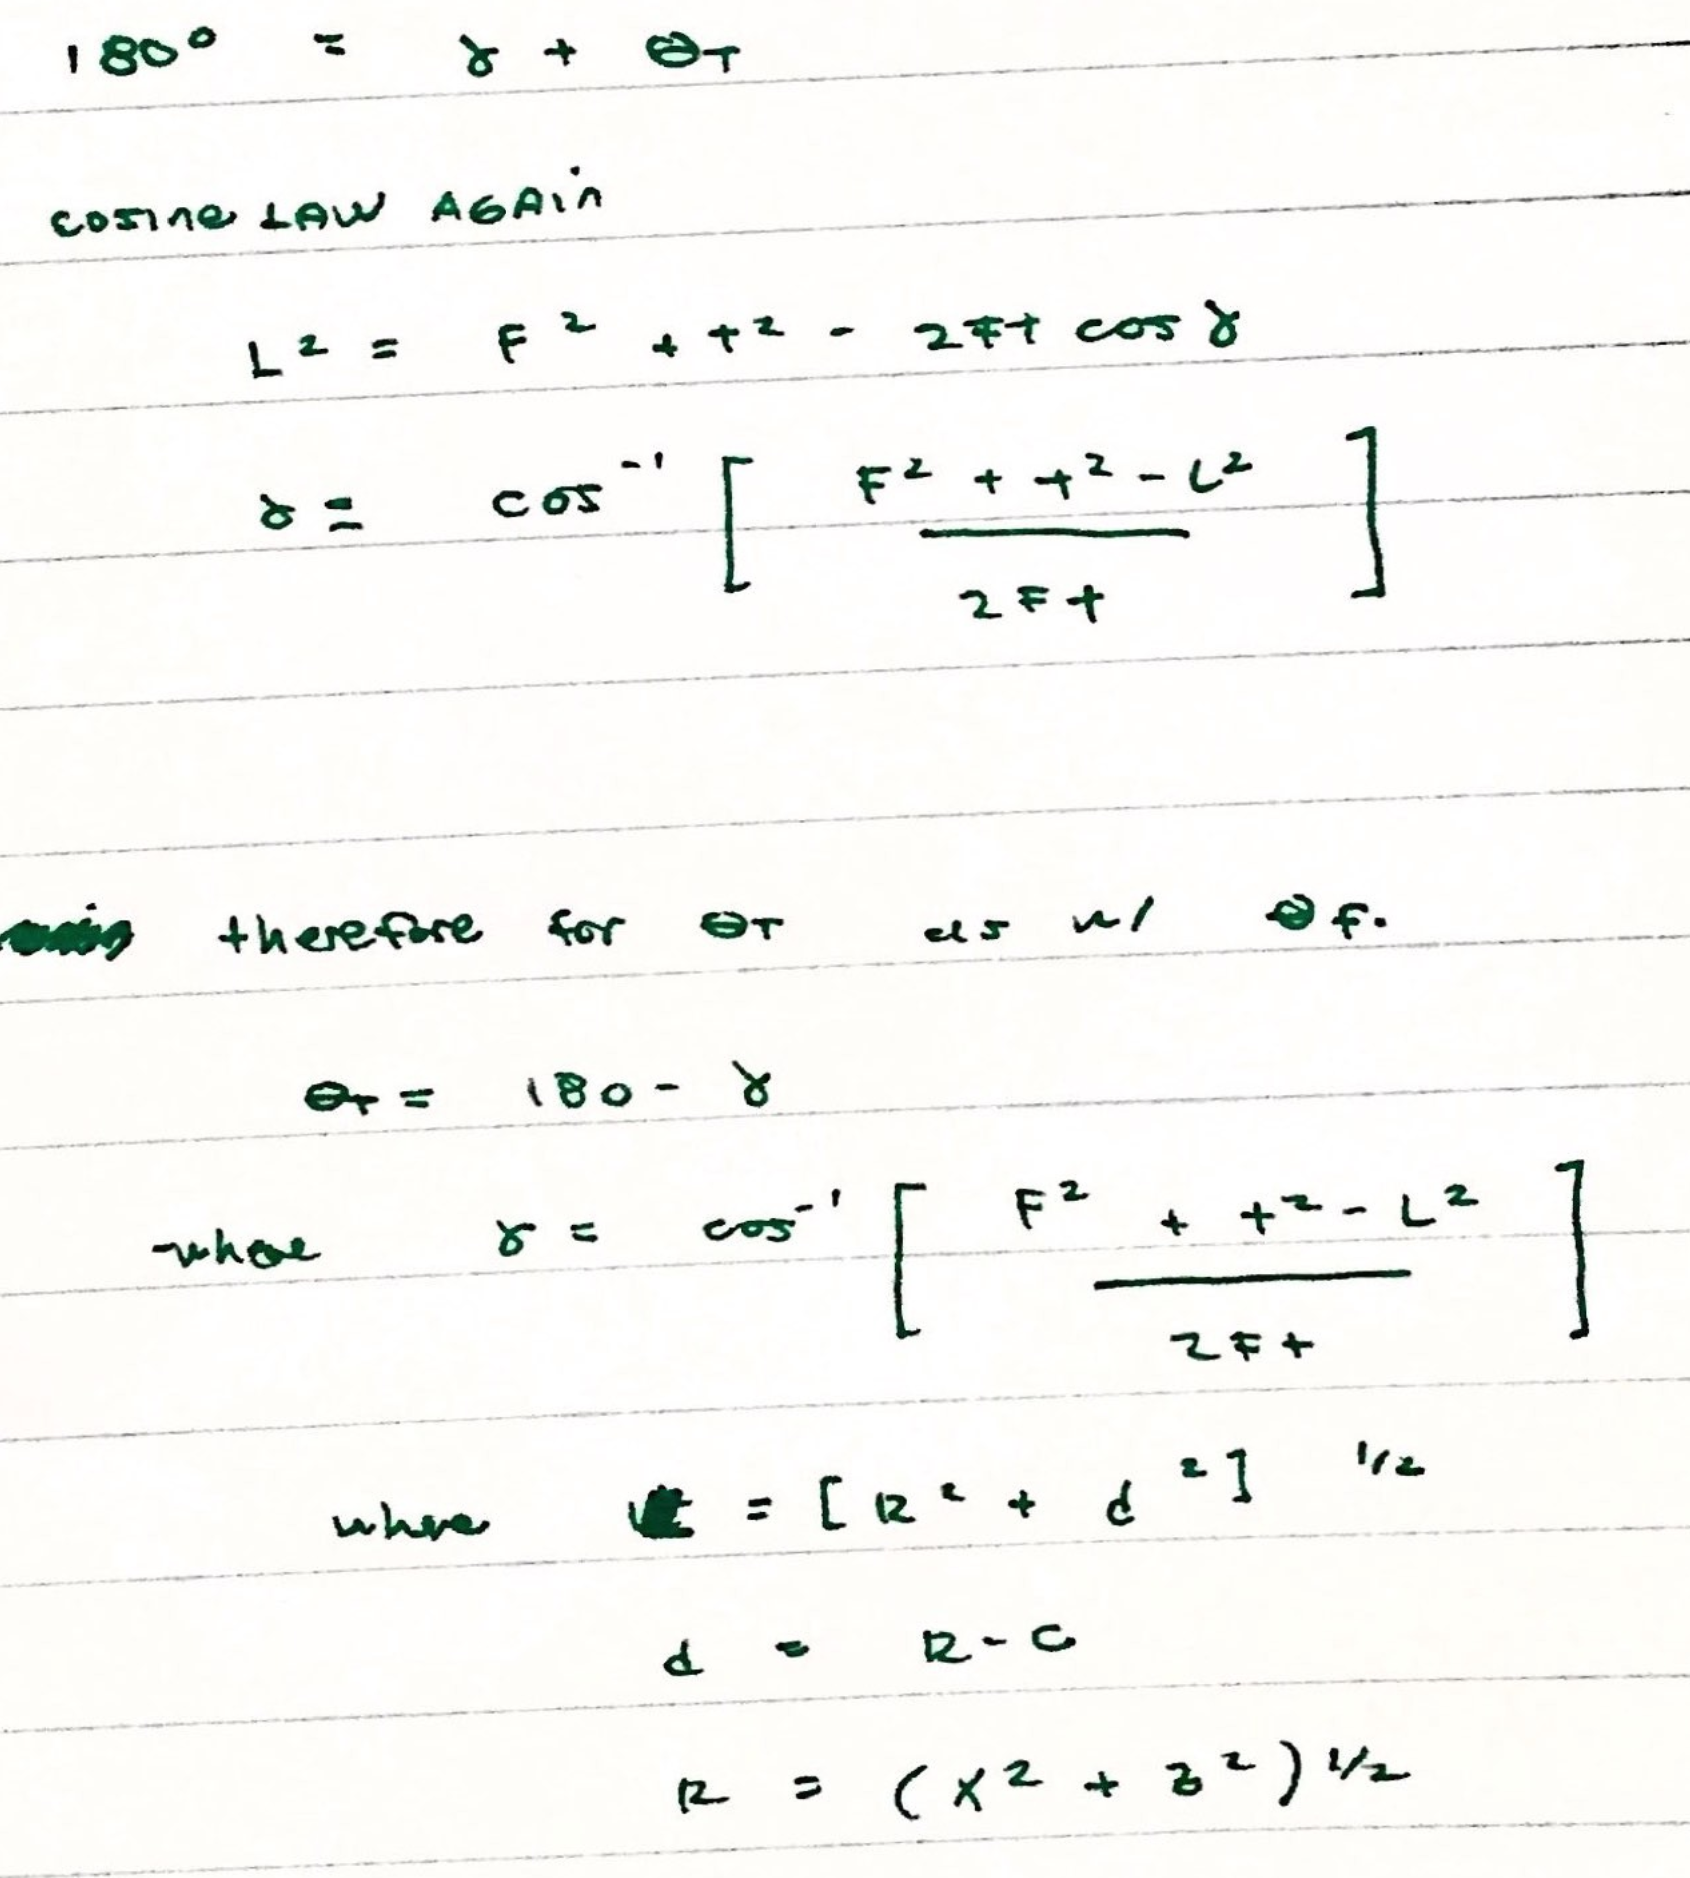 180° = γ + θT
COSINE LAW AGAIN
L² = F² + t² - 2Ft cos γ
γ = cos⁻¹ [ F² + t² - L² / 2Ft ]
therefore for θT as w/ θf.
θT = 180 - γ
where γ = cos⁻¹ [ F² + t² - L² / 2Ft ]
where = [R² + d²] 1/2
d = R - C
R = (X² + Z²) 1/2